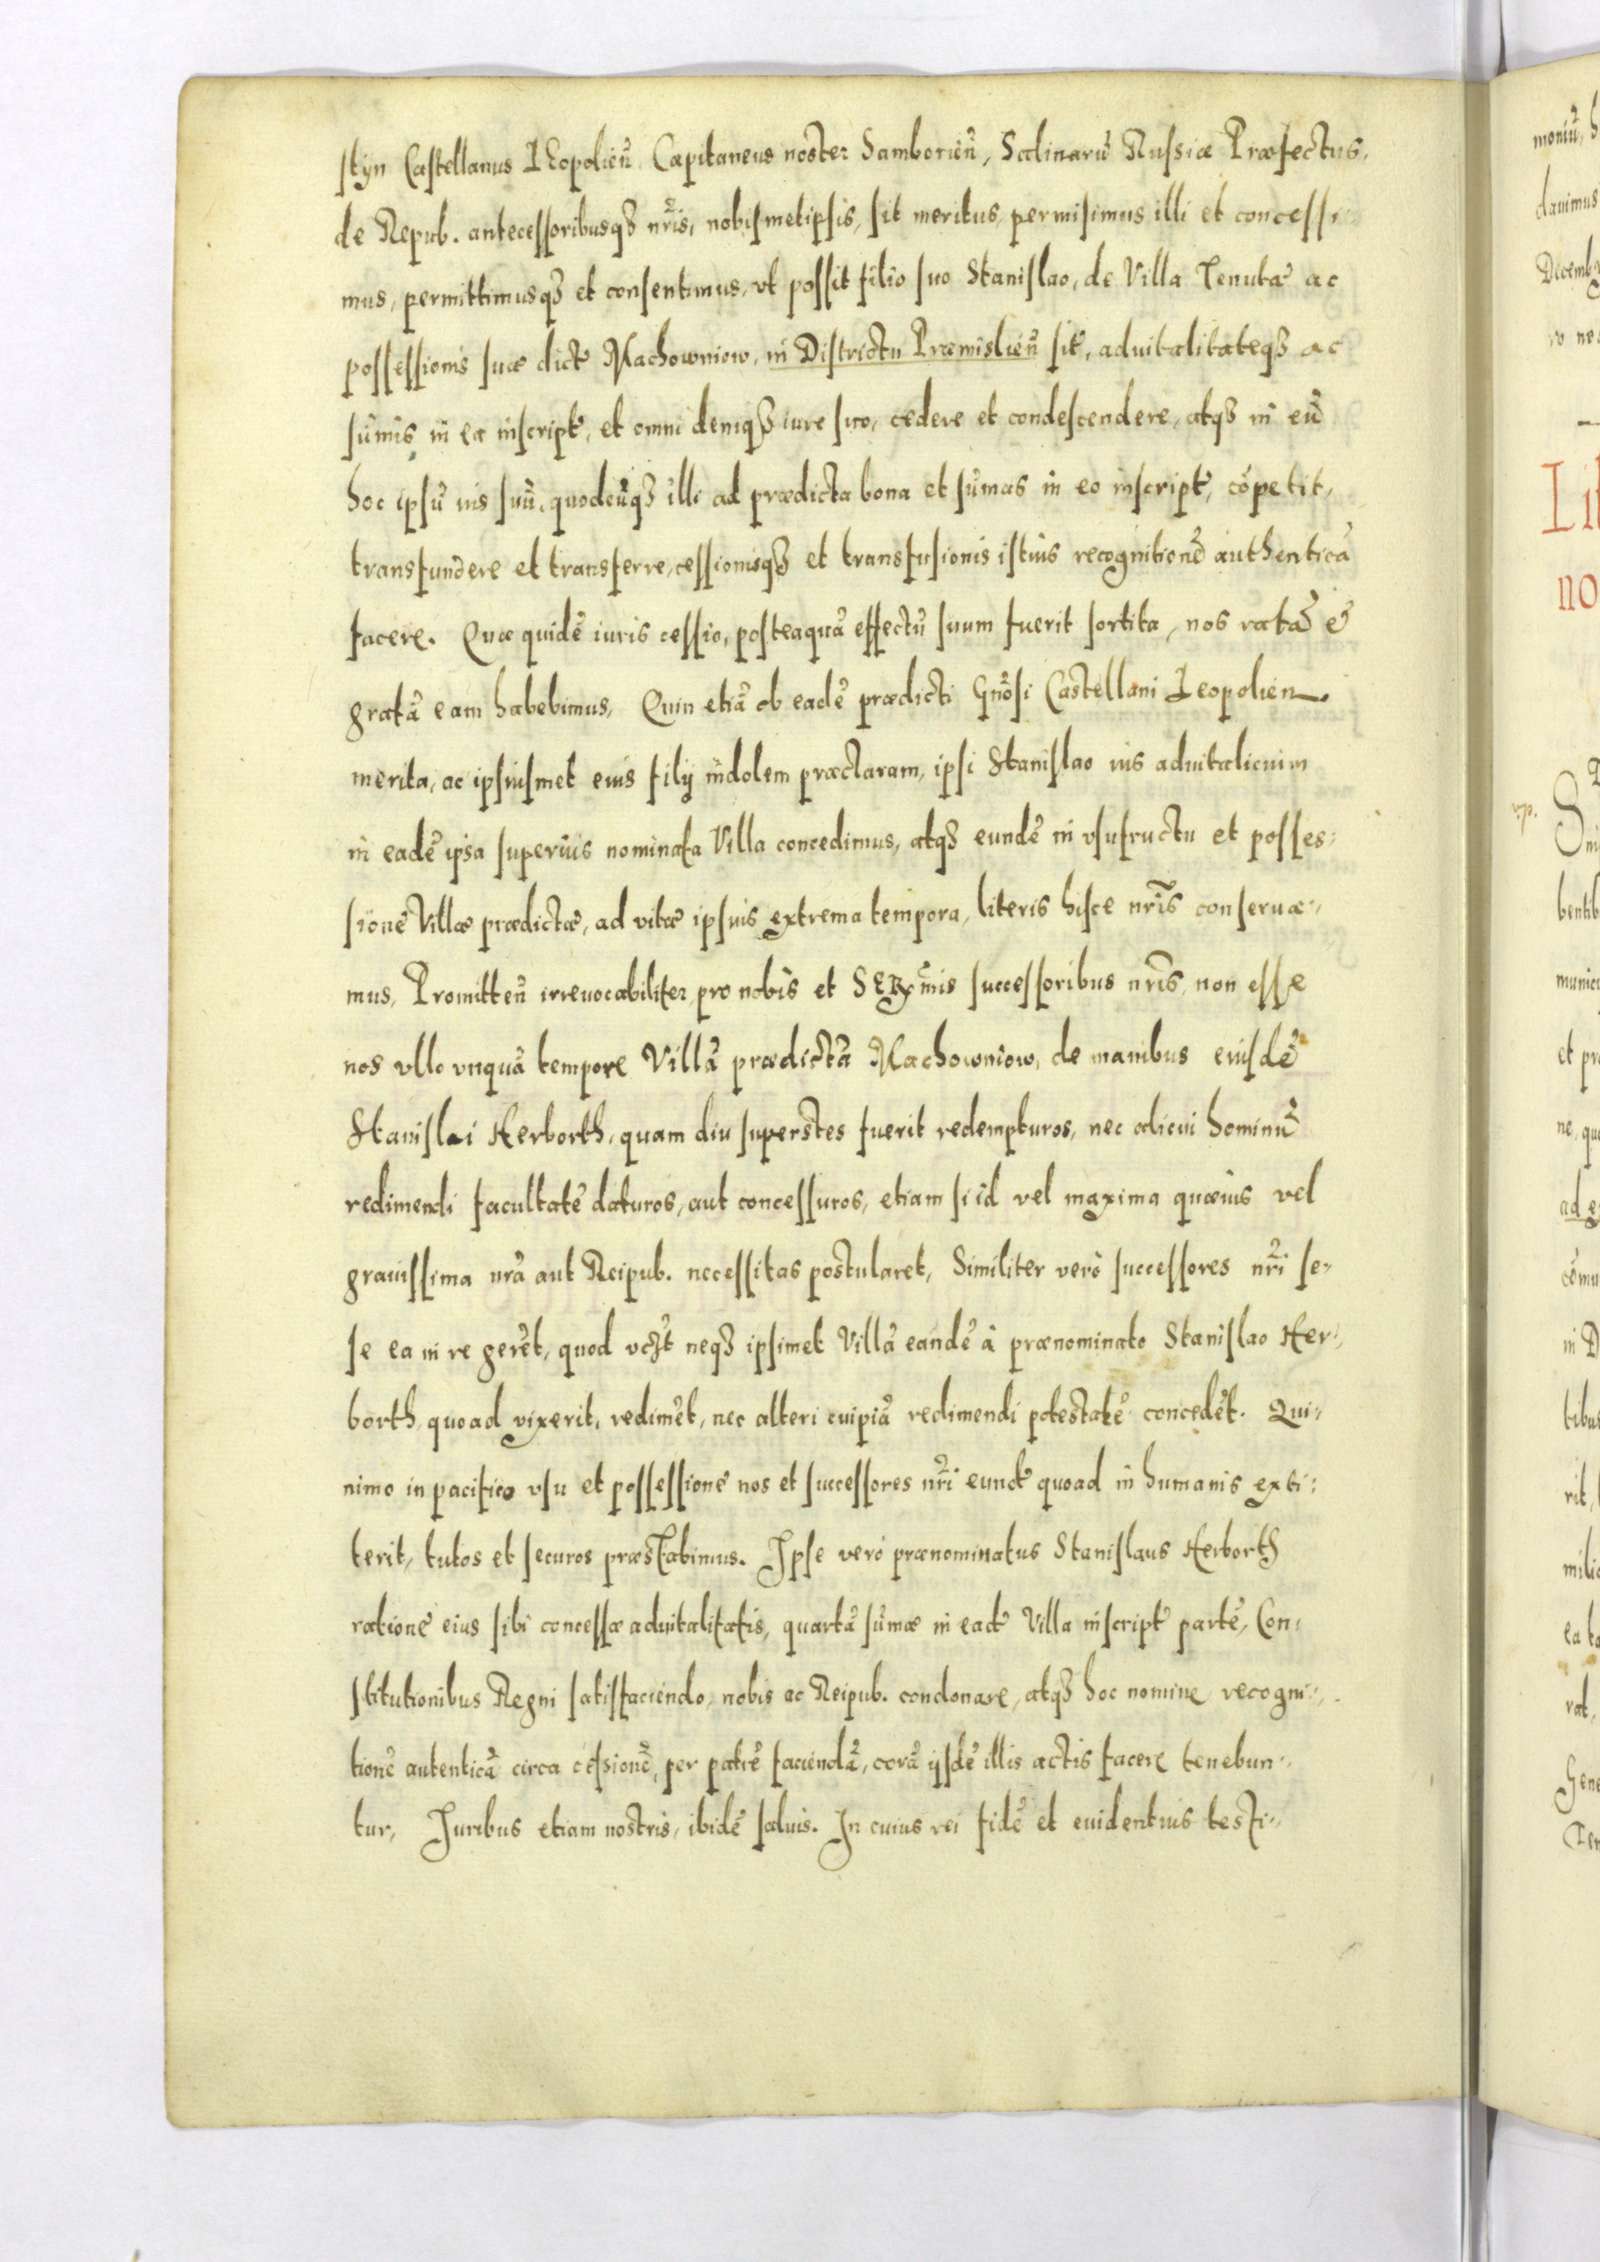 styn Castellanus LEopolieñ Capitaneus noster Samborieñ, Salinarũ Russiæ Præfectus,
de Repub. antecessoribusqȝ nr̃is, nobismetipsis, sit meritus, permisimus illi et concessi-
mus, permittimusqȝ et consentimus, vt possit filio suo Stanislao, de Villa Tenutæ ac
possessionis suæ dict̃ Machowniow, in Districtu Præmislieñ sit̃, aduitalitateqȝ ac
sum̃is in ea inscript̃, et omni deniqȝ iure suo, cedere et condescendere, atqȝ in eũ
hoc ipsũ ius suũ, quodcũqȝ illi ad prædicta bona et sũmas in eo inscript̃, cõpetit,
transfundere et transferre, cessionisqȝ et transfusionis istius recognitionẽ authenticã
facere. Quæ quidẽ iuris cessio, posteaquã effectũ suum fuerit sortita, nos ratã &
gratã eam habebimus, Quin etiã ob eadẽ prædicti Gñosi Castellani Leopolien
merita, ac ipsiusmet eius filij indolem præclaram, ipsi Stanislao ius aduitalicium
in eadẽ ipsa superius nominata Villa concedimus, atqȝ eundẽ in vsufructu et posses-
sionẽ Villæ prædictæ, ad vitæ ipsius extrema tempora, literis hisce nr̃is conserua-
mus, Promitteñ irreuocabiliter pro nobis et SERmis successoribus nr̃is, non esse
nos vllo vnquã tempore Villã prædictã Machowniow, de manibus eiusdẽ
Stanislai Herborth, quam diu superstes fuerit redempturos, nec alicui hominũ
redimendi facultatẽ daturos, aut concessuros, etiam si id vel maxima quæuis vel
grauissima nr̃a aut Reipub. necessitas postularet, Similiter verò successores nr̃i se-
se ea in re gerẽt, quod vcȝt neqȝ ipsimet Villã eandẽ à prænominato Stanislao Her-
borth, quoad vixerit, redimẽt, nec alteri cuipiã redimendi potestatẽ concedẽt. Qui-
nimo in pacifico vsu et possessionẽ nos et successores nr̃i eund̃ quoad in humanis exti-
terit, tutos et securos præstabimus. Ipse verò prænominatus Stanislaus Herborth
rationẽ eius sibi concessæ aduitalitatis, quartã sũmæ in ead̃ Villa inscript̃ partẽ, Con-
stitutionibus Regni satisfaciendo, nobis ac Reipub. condonare, atqȝ hoc nomine recogni-
tionẽ autenticã circa cessionẽ, per patrẽ faciendã, corã ijsdẽ illis actis facere tenebun-
tur, Iuribus etiam nostris, ibidẽ saluis. In cuius rei fidẽ et euidentius testi-